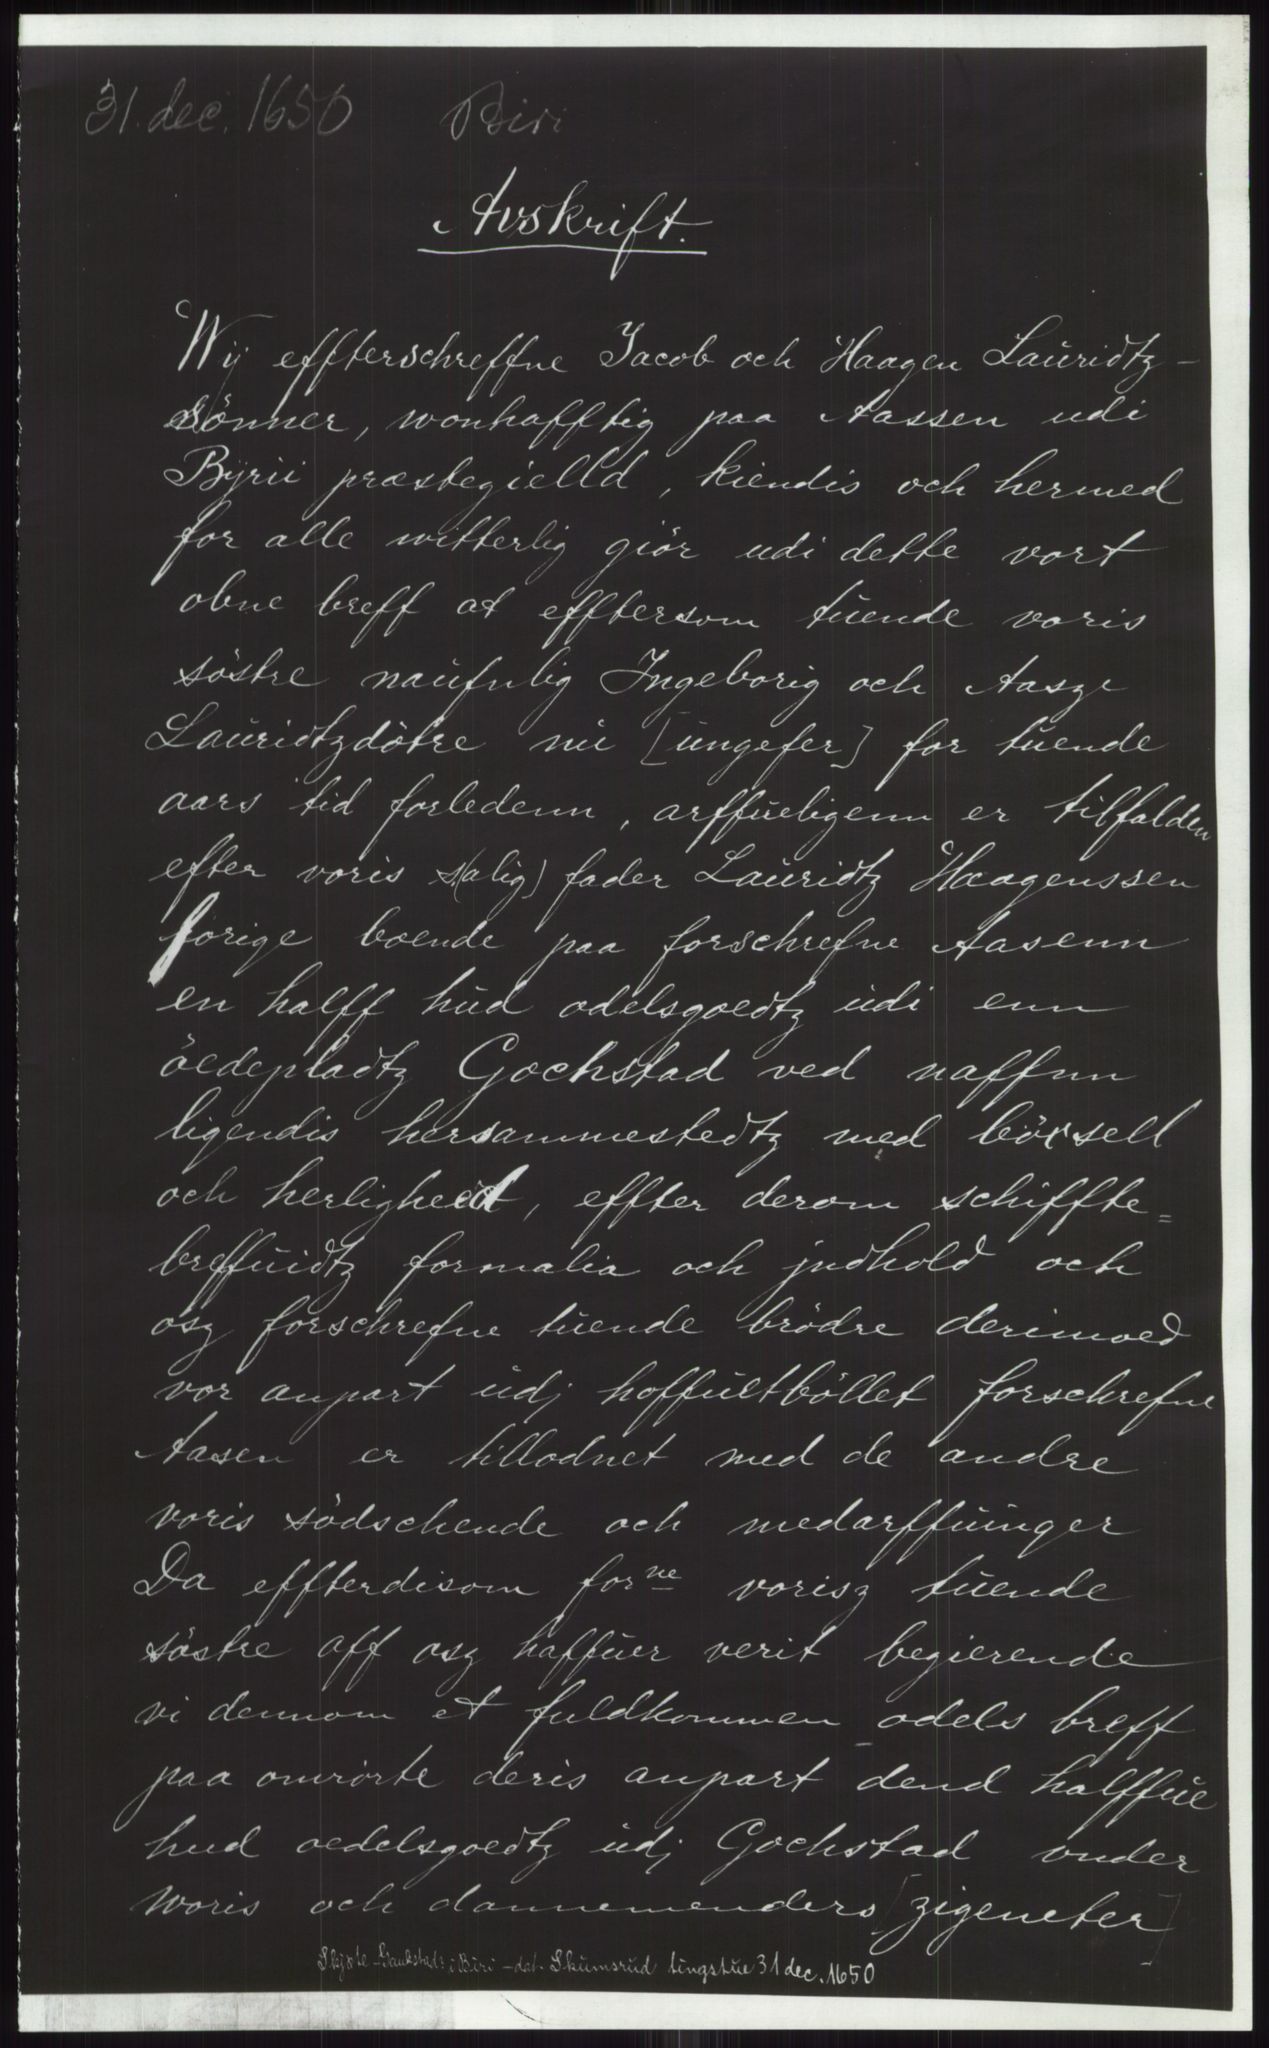 31. dec. 1650 Biri
Avskrift.
Wij effterschreffne Jacob och Haagen Lauridtz-
sönner, wonhafftig paa Aassen udi
Byrii præstegielld, kiendis och hermed
for alle witterlig giör udi dette vort
obne breff at efftersom tuende voris
söstre naufnlig Ingeborig och Aasze
Lauridtzdötre nu [ungefer] for tuende
aars tid forledenn, arffueligenn er tilfalden
efter voris s(alig) fader Lauridtz Haagenssen
forige boende paa forschrefne Aasenn
en halff hud odelsgoedtz udi enn
öedepladtz Gochstad ved naffnn
ligendis hersammestedtz med böxsell
och herligheid, effter derom schiffte=
breffuidtz formalia och jndhold och
osz forschrefne tuende brödre derimoed
vor anpart udj hoffuitböllet forschrefne
Aasen er tillodnet med de andre
voris södschende och medarffuinger
Da effterdisom forne vorisz tuende
söstre aff osz haffuer verit begierende
vi dennom et fuldkommen odels breff
paa omrörte deris anpart dend halffue
hud oedelsgoedtz udj Gochstad vnder
woris och dannemenders [zigeneter]
Skjøte - Gaukstad i Biri - dat. Skumsrud tingstue 31 dec. 1650